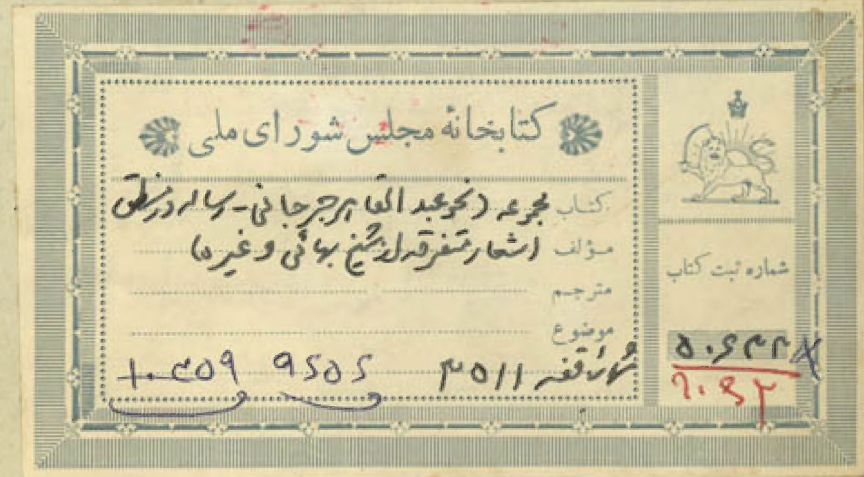 کتابخانهٔ مجلس شورای ملی
کتاب مجموعه (نحو عبدالقاهر جرجانی - رساله در منطق
مؤلف اشعار متفرقه از شیخ بهائی و غیره)
مترجم
موضوع
شماره قفسه ۳۵۱۱
شماره ثبت کتاب